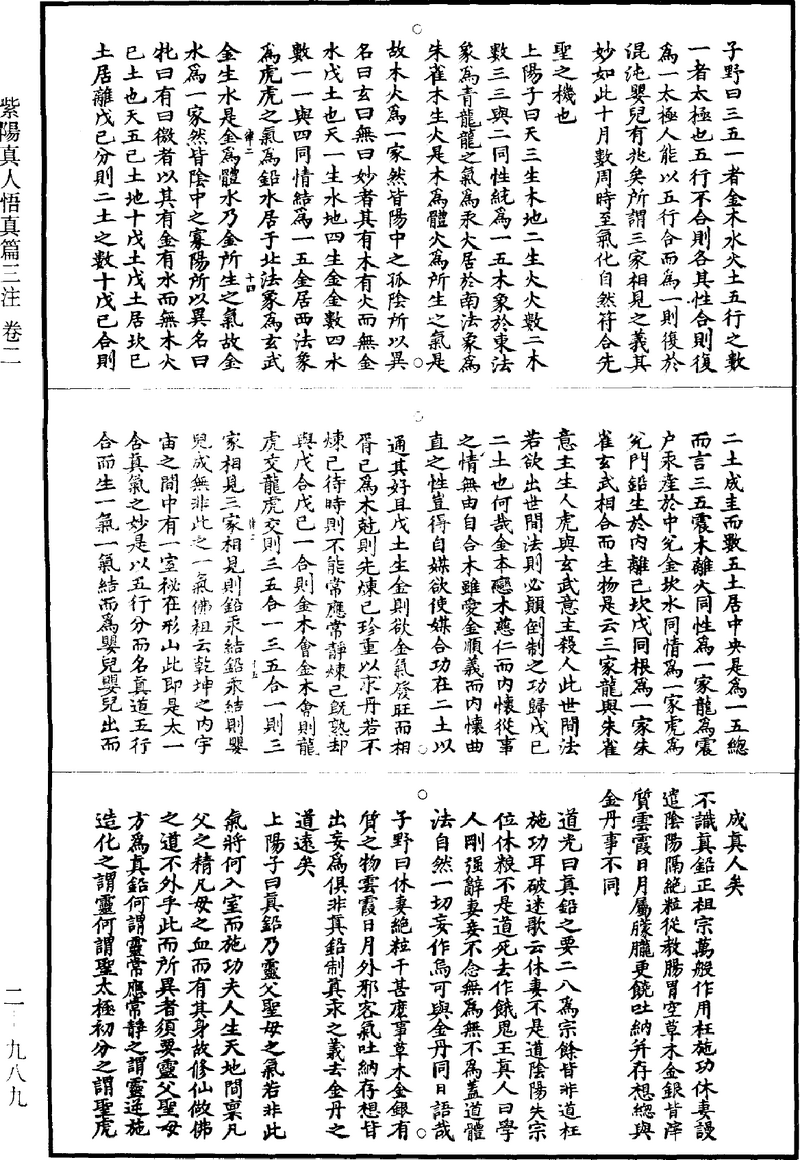 子野曰三五一者金木水火土五行之數
一者太極也五行不合則各其性合則復
爲一太極人能以五行合而爲一則復於
混沌嬰兒有兆矣所謂三家相見之義其
妙如此十月數周時至氣化自然符合先
聖之機也
上陽子曰天三生木地二生火火數二木
數三三與二同性統爲一五木象於東法
象爲青龍龍之氣爲汞火居於南法象爲
朱雀木生火是木爲體火爲所生之氣是
故木火爲一家然皆陽中之孤陰所以異
名曰玄曰無曰妙者其有木有火而無金
水戊土也天一生水地四生金金數四水
數一一與四同情結爲一五金居西法象
爲虎虎之氣爲鉛水居于北法象爲玄武
律二 十四
金生水是金爲體水乃金所生之氣故金
水爲一家然皆陰中之寡陽所以異名曰
牝曰有曰徼者以其有金有水而無木火
己土也天五己土地十戊土戊土居坎己
土居離戊己分則二土之數十戊己合則
二土成圭而數五土居中央是爲一五總
而言三五震木離火同性爲一家龍爲震
户汞產於中兌金坎水同情爲一家虎爲
兌門鉛生於内離己坎戊同根爲一家朱
雀玄武相合而生物是云三家龍與朱雀
意主生人虎與玄武意主殺人此世間法
若欲出世間法則必顛倒制之功歸戊己
二土也何哉金本戀木慈仁而内懷從事
之情無由自合木雖愛金順義而内懷曲
直之性豈得自媒欲使媒合功在二土以
通其好耳戊土生金則欲金氣發旺而相
胥己爲木尅則先煉己珍重以求丹若不
煉己待時則不能常應常靜煉己既熟却
與戊合戊己一合則金木會金木會則龍
虎交龍虎交則三五合一三五合一則三
十五
家相見三家相見則鉛汞結鉛汞結則嬰
兒成無非此之一氣佛祖云乾坤之内宇
宙之間中有一宝秘在形山此即是太一
含真氣之妙是以五行分而名真道五行
合而生一氣一氣結而爲嬰兒嬰兒出而
成真人矣
不識真鉛正祖宗萬般作用枉施功休妻謾
遣陰陽隔絶粒徒教腸胃空草木金銀皆滓
質雲霞日月屬朦朧更饒吐納并存想總與
金丹事不同
道光曰真鉛之要二八爲宗餘皆非道枉
施功耳破迷歌云休妻不是道陰陽失宗
位休粮不是道死去作餓鬼王真人曰學
人剛强辭妻妾不念無爲無不爲蓋道體
法自然一切妄作烏可與金丹同日語哉
子野曰休妻絶粒干甚麽事草木金銀有
質之物雲霞日月外邪客氣吐納存想皆
出妄爲俱非真鉛制真汞之義去金丹之
道遠矣
上陽子曰真鉛乃靈父聖母之氣若非此
氣將何入室而施功夫人生天地間禀凡
父之精凡母之血而有其身故修仙做佛
之道不外乎此而所異者須要靈父聖母
方爲真鉛何謂靈常應常静之謂靈逆施
造化之謂靈何謂聖太極初分之謂聖虎
紫陽真人悟真篇三注 卷二
二-九八九